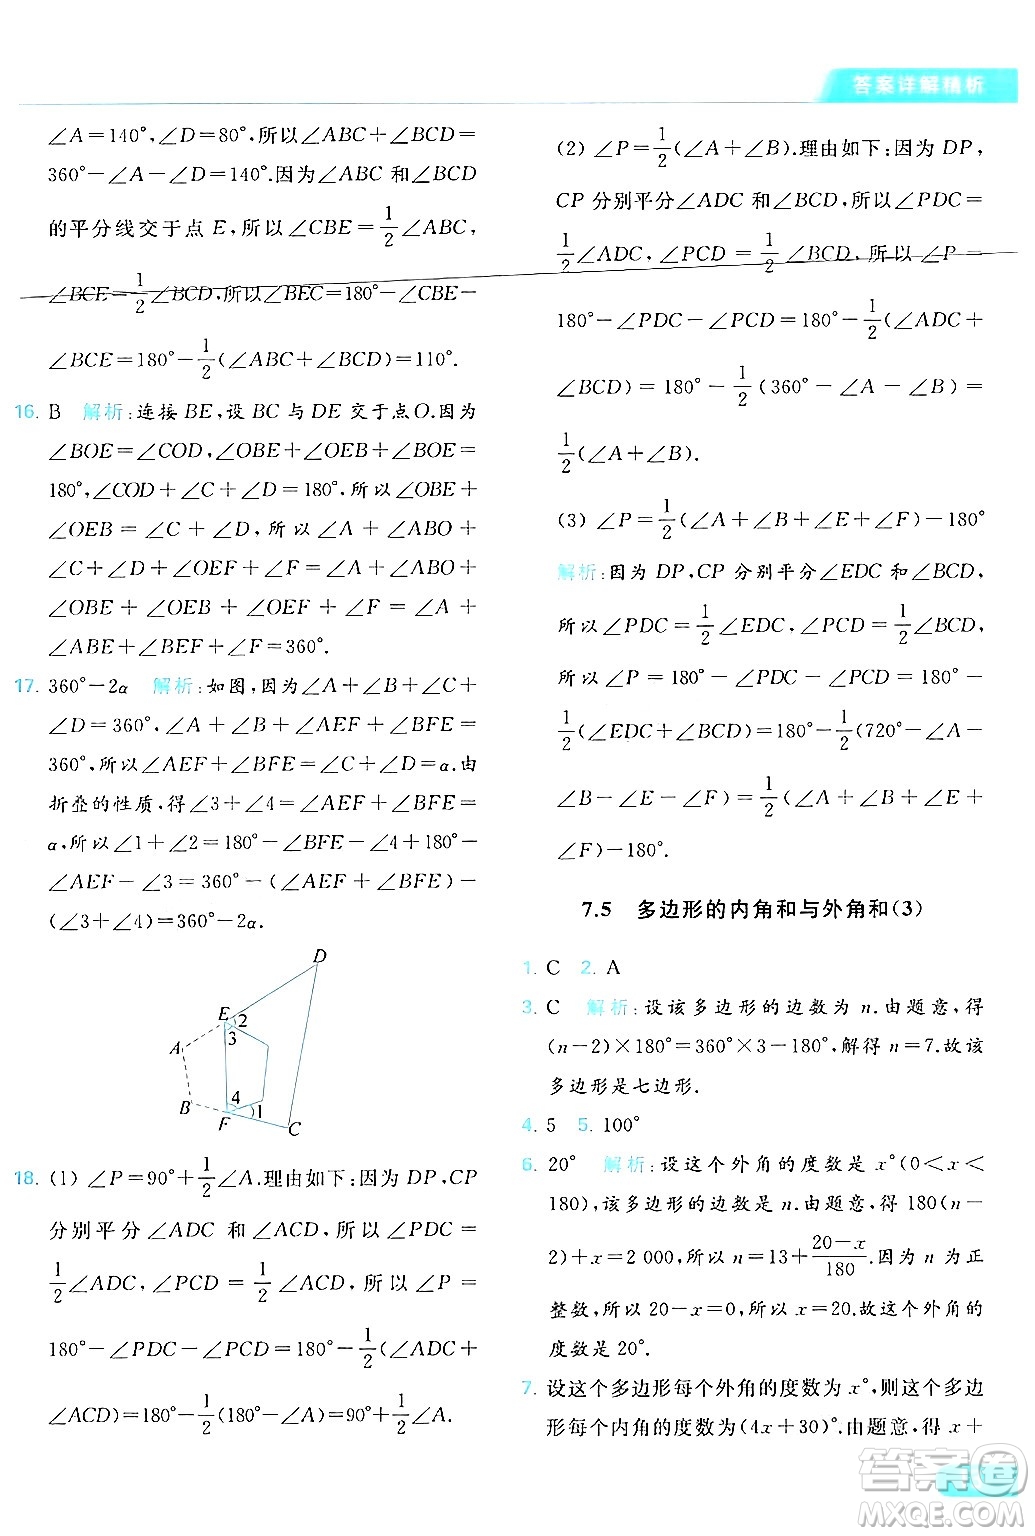 答案详解精析
∠A=140°,∠D=80°,所以∠ABC+∠BCD=
360°-∠A-∠D=140°.因为∠ABC 和∠BCD
的平分线交于点 E,所以∠CBE=1/2∠ABC,
∠BCE=1/2∠BCD,所以∠BEC=180°-∠CBE-
∠BCE=180°-1/2(∠ABC+∠BCD)=110°.
16. B 解析:连接 BE,设 BC 与 DE 交于点O.因为
∠BOE=∠COD,∠OBE+∠OEB+∠BOE=
180°,∠COD+∠C+∠D=180°,所以∠OBE+
∠OEB=∠C+∠D,所以∠A+∠ABO+
∠C+∠D+∠OEF+∠F=∠A+∠ABO+
∠OBE+∠OEB+∠OEF+∠F=∠A+
∠ABE+∠BEF+∠F=360°.
17. 360°-2α 解析:如图,因为∠A+∠B+∠C+
∠D=360°,∠A+∠B+∠AEF+∠BFE=
360°,所以∠AEF+∠BFE=∠C+∠D=α.由
折叠的性质,得∠3+∠4=∠AEF+∠BFE=
α,所以∠1+∠2=180°-∠BFE-∠4+180°-
∠AEF-∠3=360°-(∠AEF+∠BFE)-
(∠3+∠4)=360°-2α.
D
E
2
3
A
B
4
1
F
C
18. (1) ∠P=90°+1/2∠A.理由如下:因为 DP,CP
分别平分∠ADC 和∠ACD,所以∠PDC=
1/2∠ADC,∠PCD=1/2∠ACD,所以∠P=
180°-∠PDC-∠PCD=180°-1/2(∠ADC+
∠ACD)=180°-1/2(180°-∠A)=90°+1/2∠A.
(2) ∠P=1/2(∠A+∠B).理由如下:因为 DP,
CP 分别平分∠ADC 和∠BCD,所以∠PDC=
1/2∠ADC,∠PCD=1/2∠BCD,所以∠P=
180°-∠PDC-∠PCD=180°-1/2(∠ADC+
∠BCD)=180°-1/2(360°-∠A-∠B)=
1/2(∠A+∠B).
(3) ∠P=1/2(∠A+∠B+∠E+∠F)-180°
解析:因为 DP,CP 分别平分∠EDC 和∠BCD,
所以∠PDC=1/2∠EDC,∠PCD=1/2∠BCD,
所以∠P=180°-∠PDC-∠PCD=180°-
1/2(∠EDC+∠BCD)=180°-1/2(720°-∠A-
∠B-∠E-∠F)=1/2(∠A+∠B+∠E+
∠F)-180°.
7.5 多边形的内角和与外角和(3)
1. C 2. A
3. C 解析:设该多边形的边数为 n.由题意,得
(n-2)×180°=360°×3-180°,解得 n=7.故该
多边形是七边形.
4. 5 5. 100°
6. 20° 解析:设这个外角的度数是 x°(0<x<
180),该多边形的边数是 n.由题意,得 180(n-
2)+x=2 000,所以 n=13+(20-x)/180.因为 n 为正
整数,所以 20-x=0,所以 x=20.故这个外角的
度数是 20°.
7. 设这个多边形每个外角的度数为 x°,则这个多边
形每个内角的度数为(4x+30)°.由题意,得 x+
答案圈
MXQE.COM